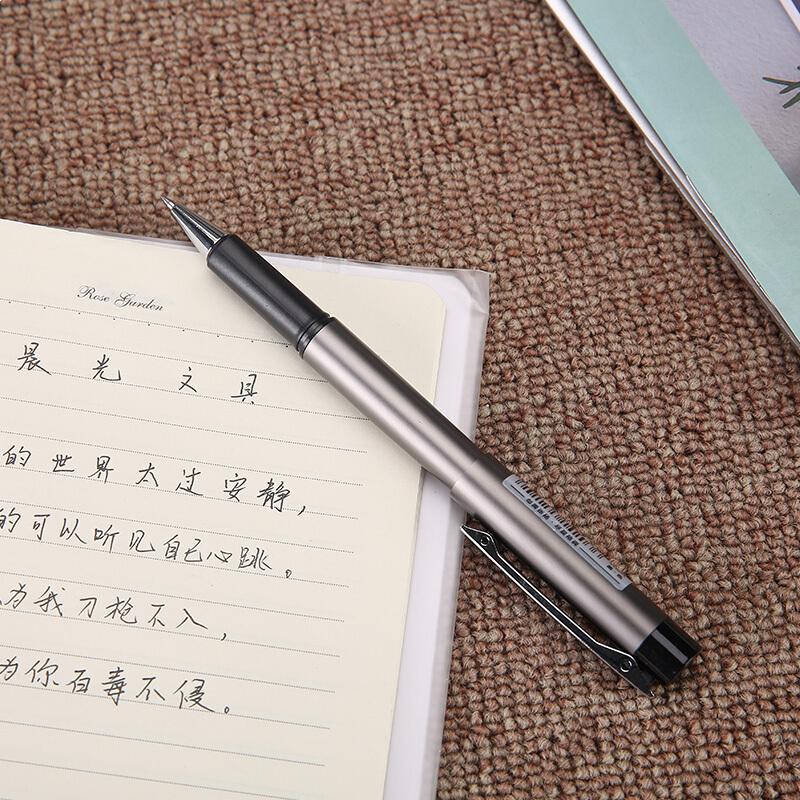 Rose Garden
晨光文具
的世界太过安静，
的可以听见自己心跳。
为我刀枪不入，
为你百毒不侵。